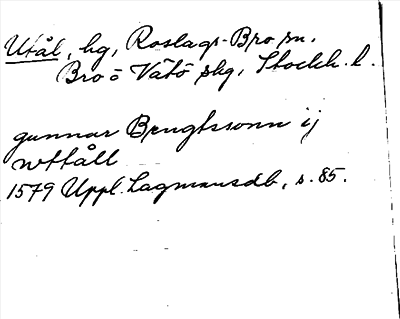 Utål, hg, Roslags-Bro sn,
Bro o Vätö skg, Stockh. l.
gunnar Bengtssonn ij
wttåll
1579 Uppl. Lagmansdb, s. 85.